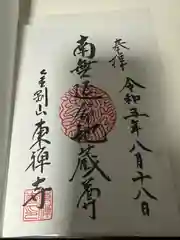 奉拝
令和五年八月十八日
南無延命地蔵尊
金剛山東禅寺